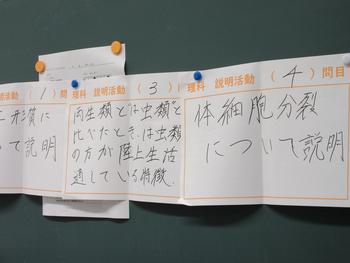 (1)問
二形質に
って説明
理科 説明活動 (3)
両生類と"は虫類"と
比べたとき、は虫類
の方が陸上生活
適している特徴.
理科 説明活動 (4)問目
体細胞分裂
について説明